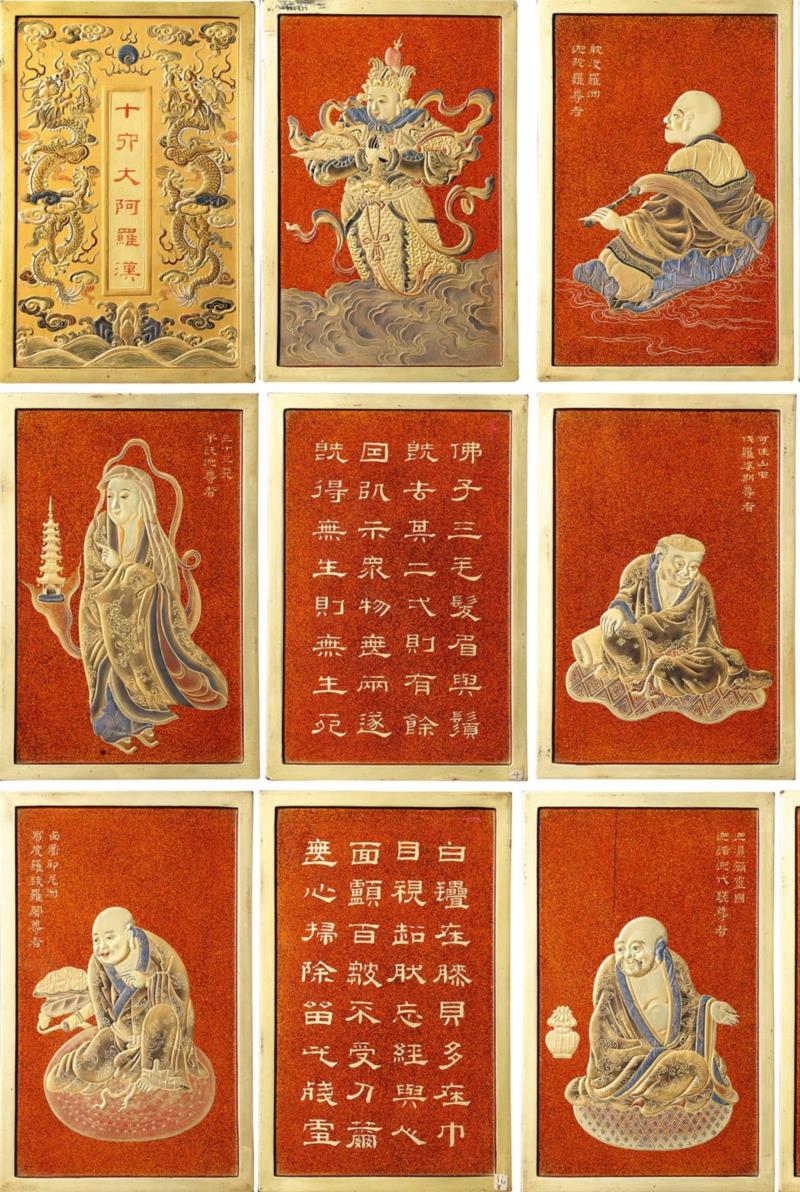 十六大阿羅漢
躭没羅洲
陀羅尊者
三十三天
半託迦尊者
佛子三毛髮眉與鬚
既去其二弌則有餘
因以示眾物無兩遂
既得無生則無生死
可住山中
伐羅婆斯尊者
尼洲
賓度羅跋羅墮尊者
白氎在膝貝多在巾
目視超肰忘經與人
面顱百皺不受刀鑷
無心掃除留此殘雪
國
迦諾迦伐蹉尊者